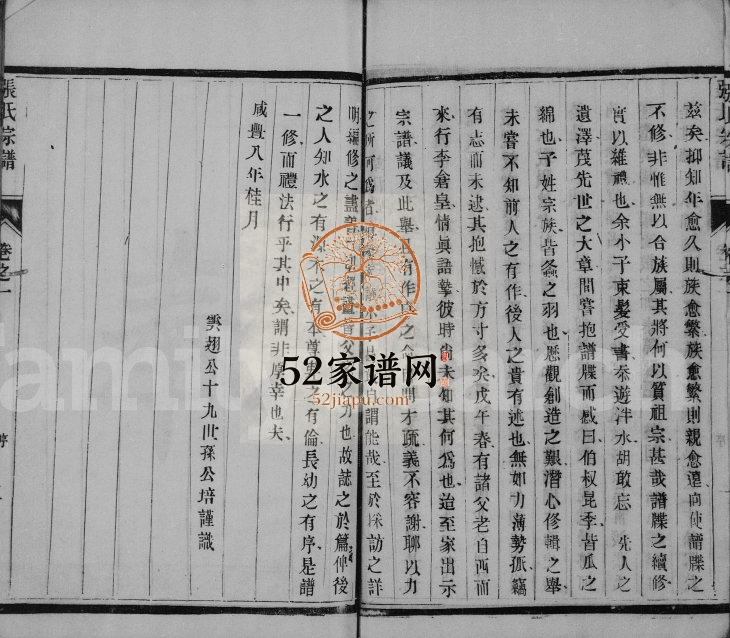 張氏宗譜
茲矣抑知年愈久則族愈繁族愈繁則親愈遠向使譜牒之
不修非惟無以合族屬其將何以質祖宗甚哉譜牒之續修
實以維禮也余小子束髮受書忝遊泮水胡敢忘 先人之
遺澤茂先世之大章間嘗抱譜牒而感曰伯叔昆季皆瓜之
綿也子姓宗族皆螽之羽也歷觀創造之艱潛心修輯之舉
未嘗不知前人之有作後人之貴有述也無如力薄勢孤竊
有志而未逮其抱憾於方寸多矣戊午春有諸父老自西而
來行李倉皇情眞語摯彼時尚未知其何爲也迨至家出示
宗譜議及此舉有作之才疏義不容謝聊以力
之所可爲者自謂能哉至於採訪之詳
明編修之盡父之力也故誌之於篇俾後
之人知水之有源木之有本尊之有倫長幼之有序是譜
一修而禮法行乎其中矣謂非厚幸也夫
咸豐八年桂月
雲翅公十九世孫公培謹識
張氏宗譜
卷之一
序
52家谱网
52jiapu.com
family